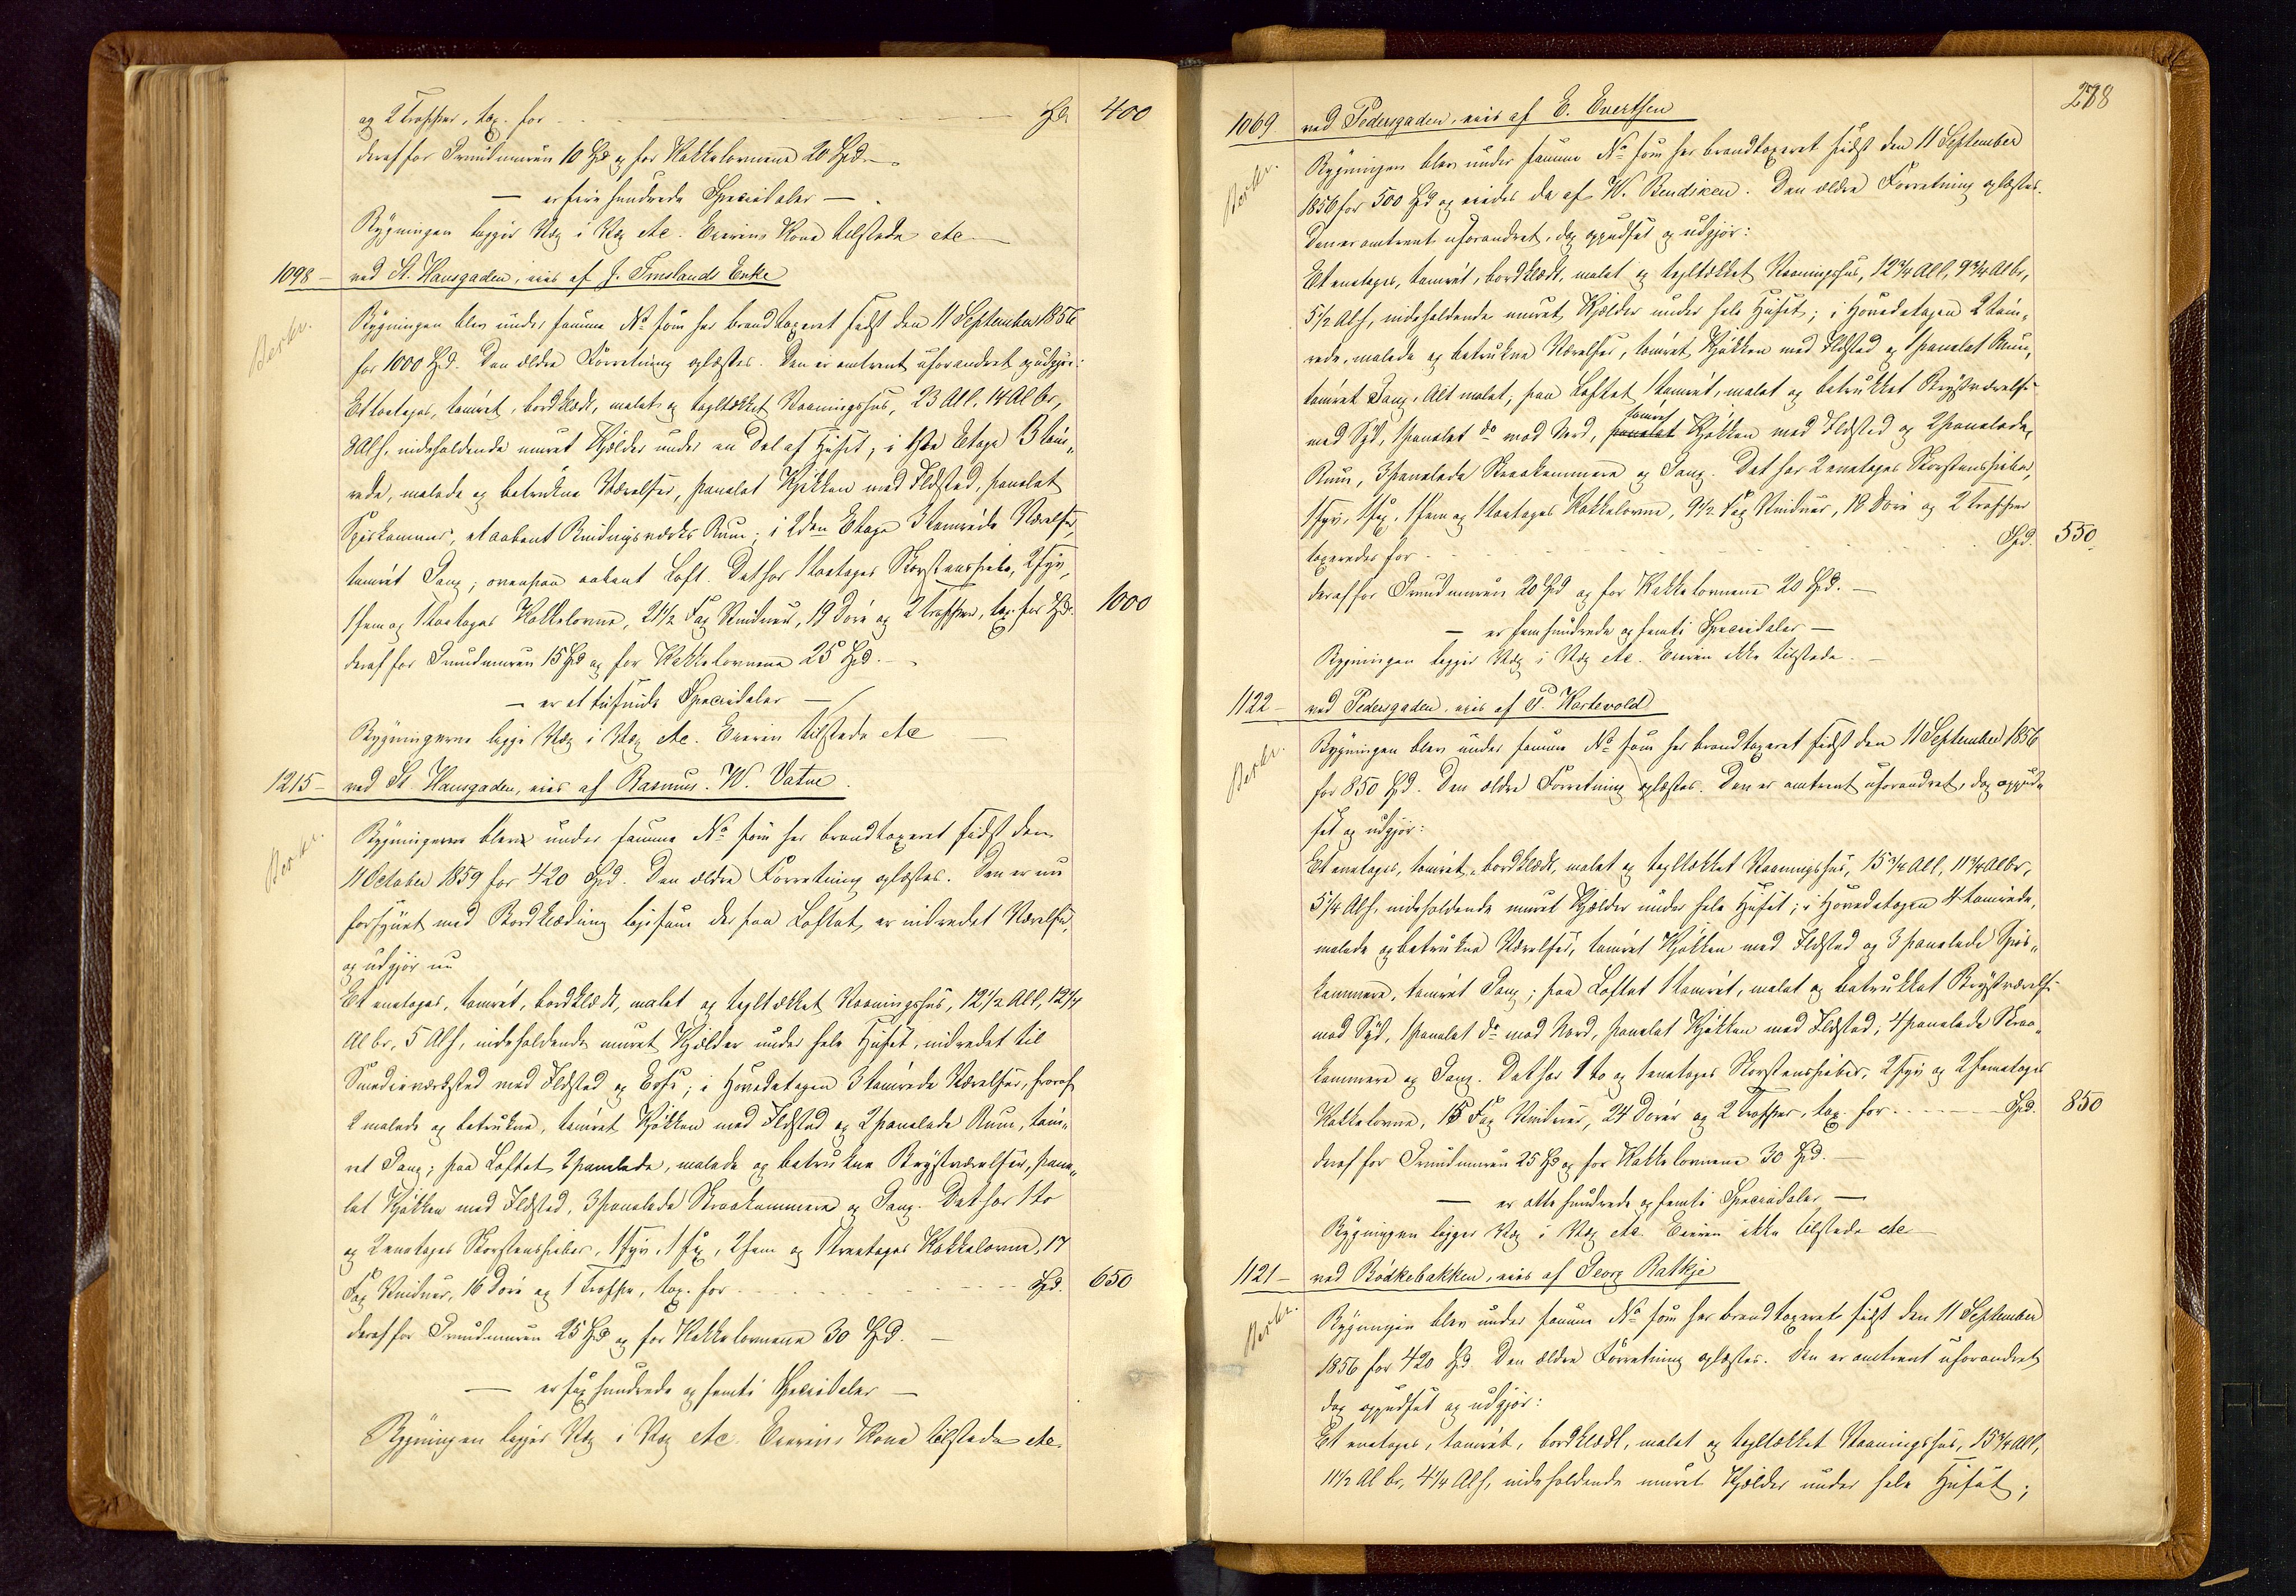 og 2 Trapper, tax. for Spd. 400
deraf for Grundmuren 10 Spd og for Kakkelovnene 20 Spd. —
— er fire hundrede Speciedaler —
Bygningen ligger Væg i Væg etc. Eierens Kone tilstede etc —
1098 — ved St. Hansgaden, eies af J. Imslands Enke
Berkr.
Bygningen blev under samme No som her brandtaxeret sidst den 11 September 1856
for 1000 Spd. Den ældre Forretning oplæstes. Den er omtrent uforandret og udgjør:
Et toetages, tømret, bordklædt, malet og tegltækket Vaaningshus, 23 Al l, 14 Al br,
8 Al h, indeholdende muret Kjælder under en Del af Huset, i 1ste Etage 3 tøm-
rede, malede og betrukne Værelser, panelet Kjøkken med Ildsted, panelet
Spiskammer, et aabent Rum; i 2den Etage 3 tømrede Værelser,
tømret Gang; ovenpaa aabent Loft. Det har 1 toetages Skorstenspibe, 2 syv,
1 fem og 1 toetages Kakkelovne, 21½ Fag Vinduer, 19 Døre og 2 Trapper, tax. for Spd. 1000
deraf for Grundmuren 15 Spd og for Kakkelovnene 25 Spd. —
— er et tusinde Speciedaler —
Bygningerne ligge Væg i Væg etc. Eieren tilstede etc —
1215 — ved St. Hansgaden, eies af Rasmus W. Vatne.
Berkr.
Bygningen blev under samme No som her brandtaxeret sidst den
11 October 1859 for 420 Spd. Den ældre Forretning oplæstes. Den er nu
forsynet med Bordklædning ligesom der paa Loftet er indredet Værelser,
og udgjør nu
Et enetages, tømret, bordklædt, malet og tegltækket Vaaningshus, 12½ Al l, 12¼
Al br, 5 Al h, indeholdende muret Kjælder under hele Huset, indredet til
Smedieværksted med Ildsted og Esse; i Hovedetagen 3 tømrede Værelser, hvoraf
2 malede og betrukne, tømret Kjøkken med Ildsted og 2 panelede Rum, tøm-
ret Gang; paa Loftet 2 panelede, malede og betrukne Brystværelser, pane-
let Kjøkken med Ildsted, 3 panelede Skraakammere og Gang. Det har 1 to
og 2 enetages Skorstenspiber, 1 syv, 1 sex, 2 fem og 1 treetages Kakkelovne, 17
Fag Vinduer, 16 Døre og 1 Trappe, tax. for Spd. 650
deraf for Grundmuren 25 Spd og for Kakkelovnene 30 Spd. —
— er sex hundrede og femti Speciedaler —
Bygningen ligger Væg i Væg etc. Eierens Kone tilstede etc.
278
1069 ved Pedersgaden, eies af E. Evertsen
Berkr.
Bygningen blev under samme No som her brandtaxeret sidst den 11 September
1856 for 500 Spd og eiedes da af W. Bendixen. Den ældre Forretning oplæstes.
Den er omtrent uforandret, dog oppudset og udgjør:
Et enetages, tømret, bordklædt, malet og tegltækket Vaaningshus, 12¾ Al l, 9¾ Al br,
5½ Al h, indeholdende muret Kjælder under hele Huset; i Hovedetagen 2 tøm-
rede, malede og betrukne Værelser, tømret Kjøkken med Ildsted og 1 panelet Rum,
tømret Gang, Alt malet; paa Loftet 1 tømret, malet og betrukket Brystværelse
mod Syd, 1 panelet do mod Nord, panelet tømret Kjøkken med Ildsted og 2 panelede
Rum, 3 panelede Skraakammere og Gang. Det har 2 enetages Skorstenspiber,
1 syv, 1 sex, 1 fem og 1 toetages Kakkelovne, 9½ Fag Vinduer, 18 Døre og 2 Trapper
taxeredes for Spd. 550.
deraf for Grundmuren 20 Spd og for Kakkelovnene 20 Spd. —
— er femhundrede og femti Speciedaler —
Bygningen ligger Væg i Væg etc. Eieren ikke tilstede. —
1122 — ved Pedersgaden, eies af P. Kartevold
Berkr.
Bygningen blev under samme No som her brandtaxeret sidst den 11 September 1856
for 850 Spd. Den ældre Forretning oplæstes. Den er omtrent uforandret, dog oppud-
set og udgjør:
Et enetages, tømret, bordklædt, malet og tegltækket Vaaningshus, 15¾ Al l, 11¾ Al br,
5¼ Al h, indeholdende muret Kjælder under hele Huset; i Hovedetagen 4 tømrede,
malede og betrukne Værelser, tømret Kjøkken med Ildsted og 3 panelede Spis-
kammere, tømret Gang; paa Loftet 1 tømret, malet og betrukket Brystværelse
mod Syd, 1 panelet do mod Nord, panelet Kjøkken med Ildsted, 4 panelede Skraa-
kammere og Gang. Det har 1 to og 1 enetages Skorstenspiber, 2 syv og 2 femetages
Kakkelovne, 15 Fag Vinduer, 24 Døre og 2 Trapper, tax. for Spd. 850
deraf for Grundmuren 25 Spd og for Kakkelovnene 30 Spd. —
— er otte hundrede og femti Speciedaler —
Bygningen ligger Væg i Væg etc. Eieren ikke tilstede etc —
1121 — ved Bødkebakken, eies af Georg Ratkje
Berkr.
Bygningen blev under samme No som her brandtaxeret sidst den 11 September
1856 for 420 Spd. Den ældre Forretning oplæstes. Den er omtrent uforandret
dog oppudset og udgjør:
Et enetages, tømret, bordklædt, malet og tegltækket Vaaningshus, 15¾ Al l,
11½ Al br, 4¼ Al h, indeholdende muret Kjælder under hele Huset;